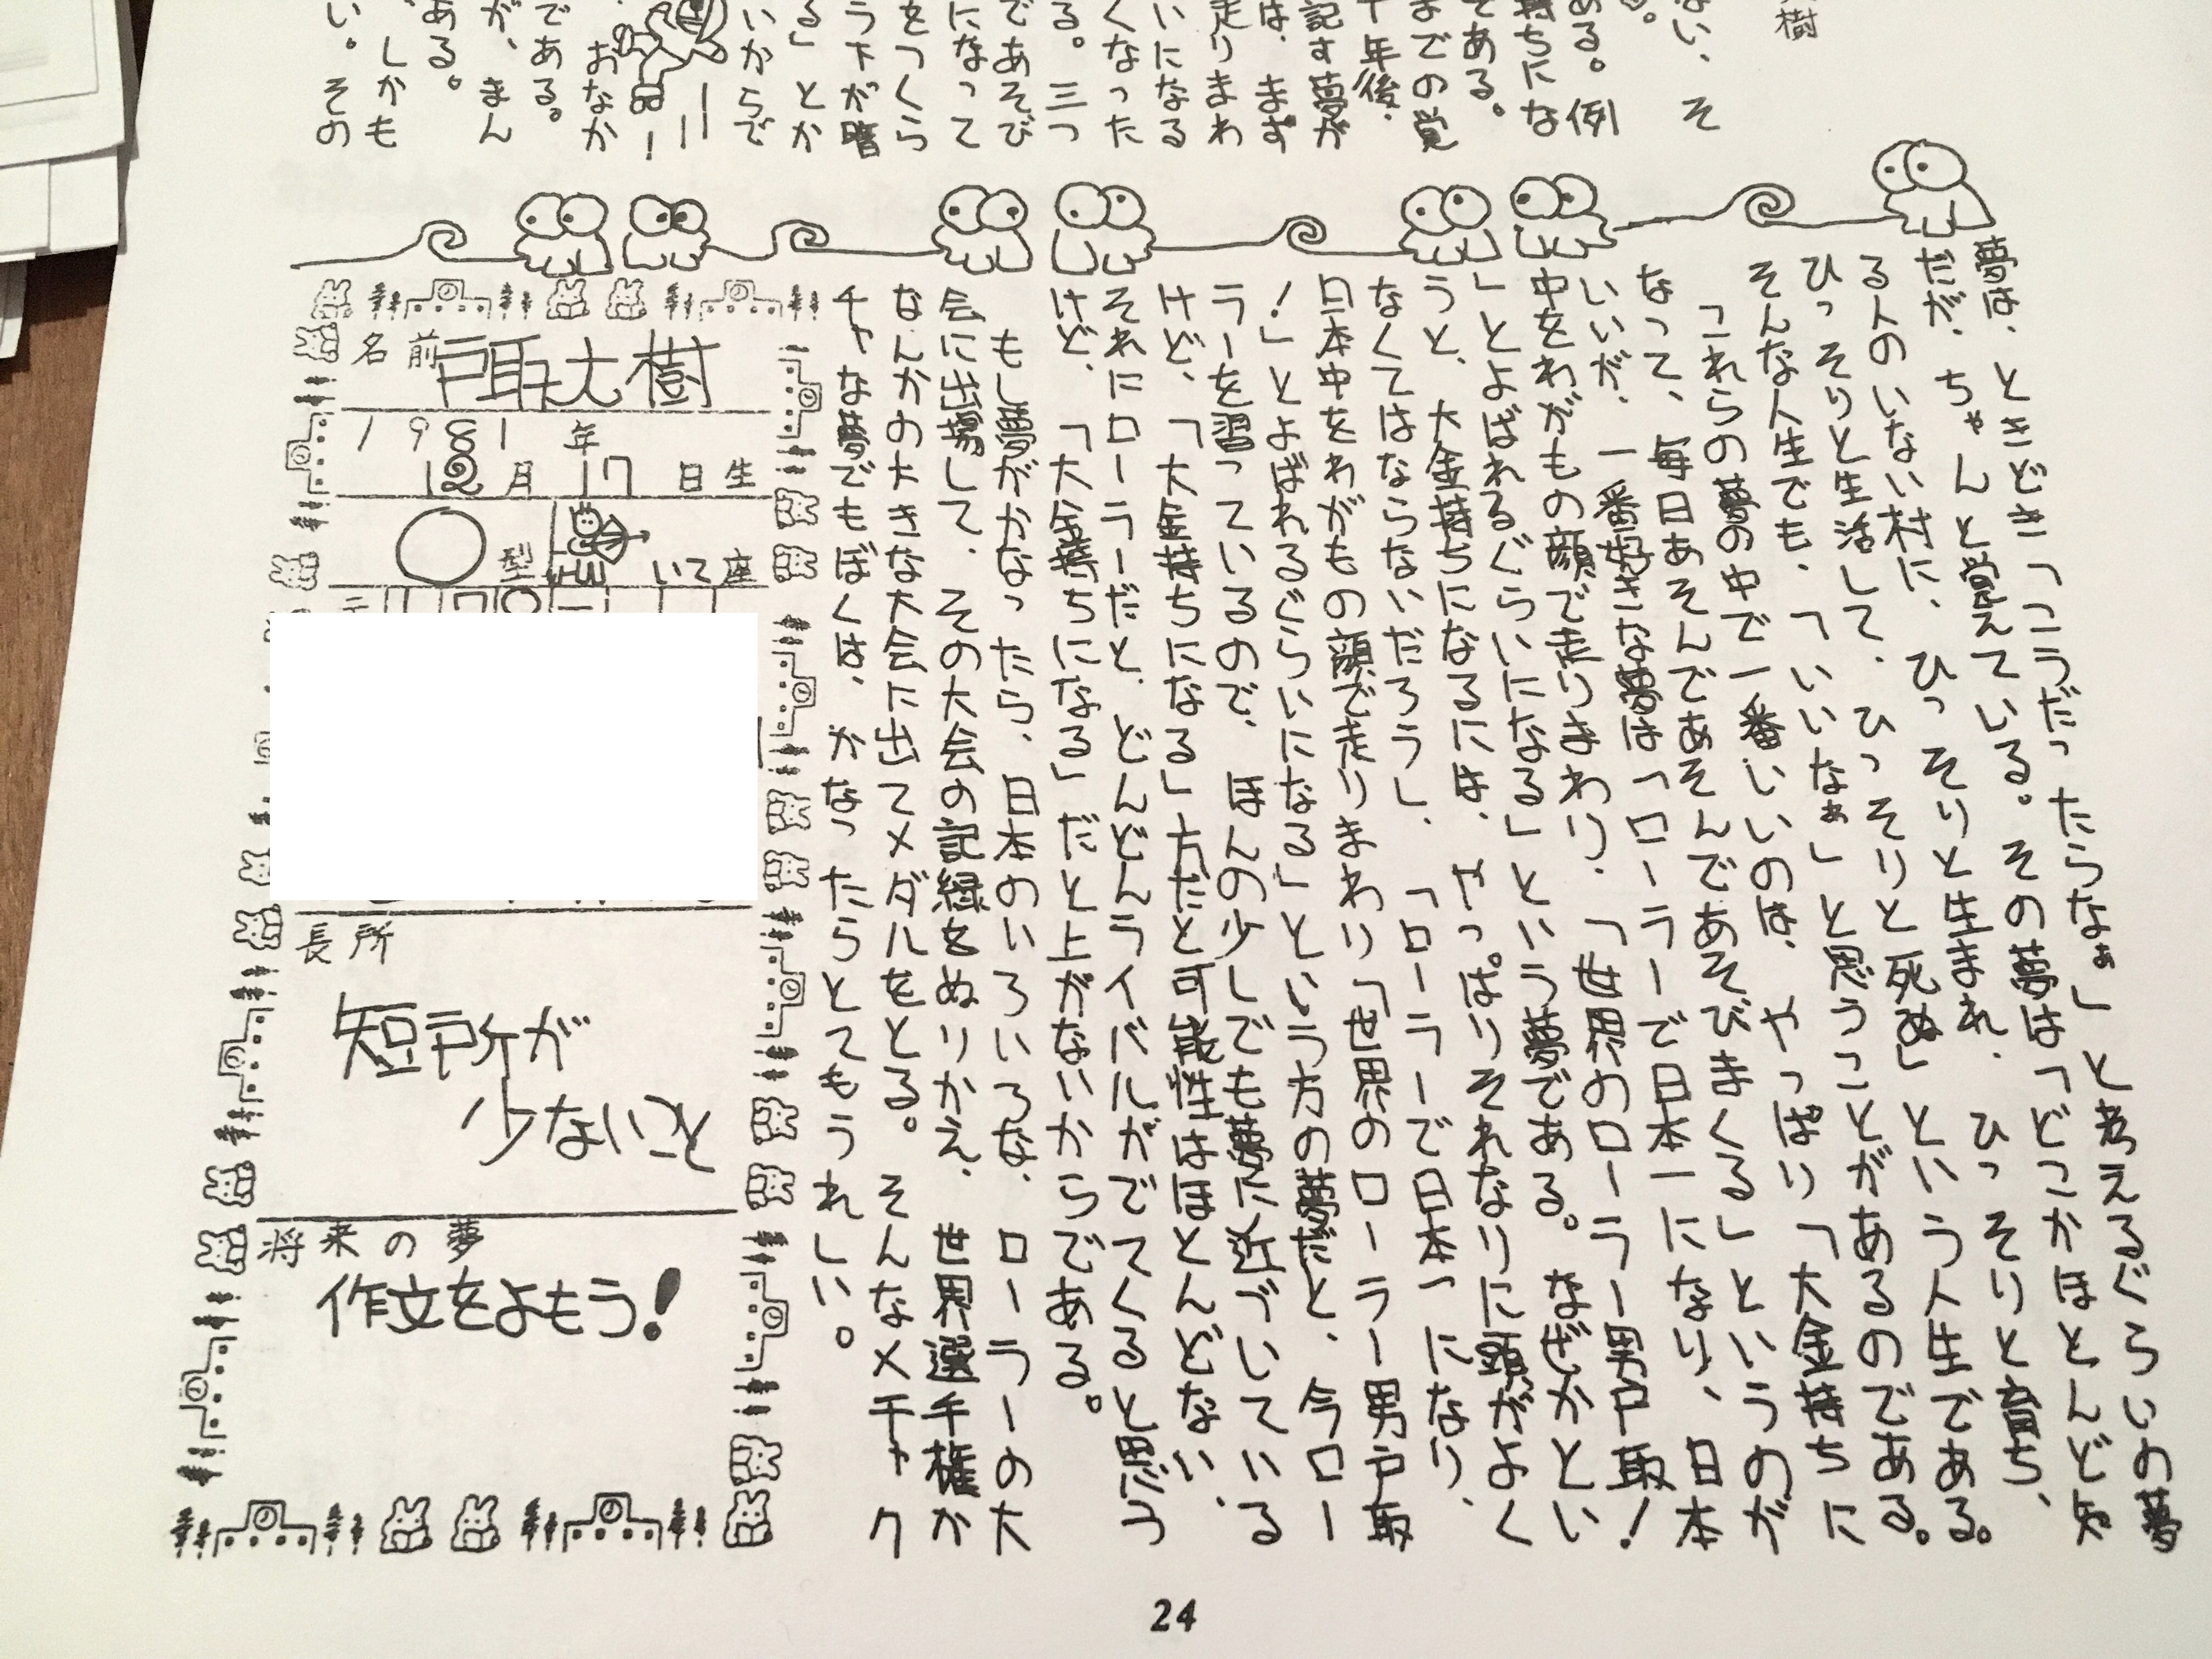 樹
ない、そ
る。
ある。例
持ちにな
である。
までの覚
十年後、
記録が
は、まず
走りまわ
いになる
くなった
る。三つ
であそび
になって
をつくら
ラーが音
る」とか
いからで
おなか
である。
が、まん
ある。
、しかも
い。その
夢は、ときどき「こうだったらなぁ」と考えるぐらいの夢
だが、ちゃんと覚えている。その夢は「どこかほとんど知
る人のいない村に、ひっそりと生まれ、ひっそりと育ち、
ひっそりと生活して、ひっそりと死ぬ」という人生である。
そんな人生でも、「いいなぁ」と思うことがあるのである。
これらの夢の中で一番いいのは、やっぱり「大金持ちに
なって、毎日あそんであそんであそびまくる」というのが
いいが、一番好きな夢は「ローラーで日本一になり、日本
中をわがもの顔で走りまわり、「世界のローラー男戸取!
」とよばれるぐらいになる」という夢である。なぜかとい
うと、大金持ちになるには、やっぱりそれなりに頭がよく
なくてはならないだろうし、「ローラーで日本一になり、
日本中をわがもの顔で走りまわり「世界のローラー男戸取
!」とよばれるぐらいになる」という方の夢だと、今ロー
ラーを習っているので、ほんの少しでも夢に近づいている
けど、「大金持ちになる」方だと可能性はほとんどない、
それにローラーだと、どんどんライバルがでてくると思う
けど、「大金持ちになる」だと上がないからである。
もし夢がかなったら、日本のいろいろな、ローラーの大
会に出場して、その大会の記録をぬりかえ、世界選手権か
なんかの大きな大会に出てメダルをとる。そんなメチャク
チャな夢でもぼくは、かなったらとてもうれしい。
名前 戸取大樹
1981年
12月17日生
○型 いて座
長所
短所が
少ないこと
将来の夢
作文をよもう!
24